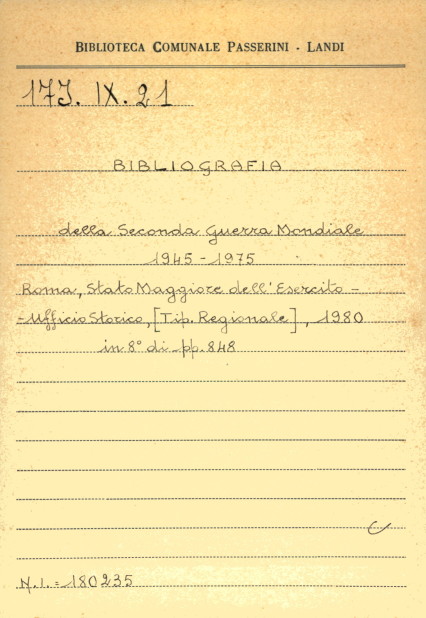 BIBLIOTECA COMUNALE PASSERINI - LANDI
173. IX. 21
BIBLIOGRAFIA
della Seconda Guerra Mondiale
1945 - 1975
Roma, Stato Maggiore dell'Esercito -
- Ufficio Storico, [Tip. Regionale], 1980
in 8° di pp. 848
N.I. = 180235